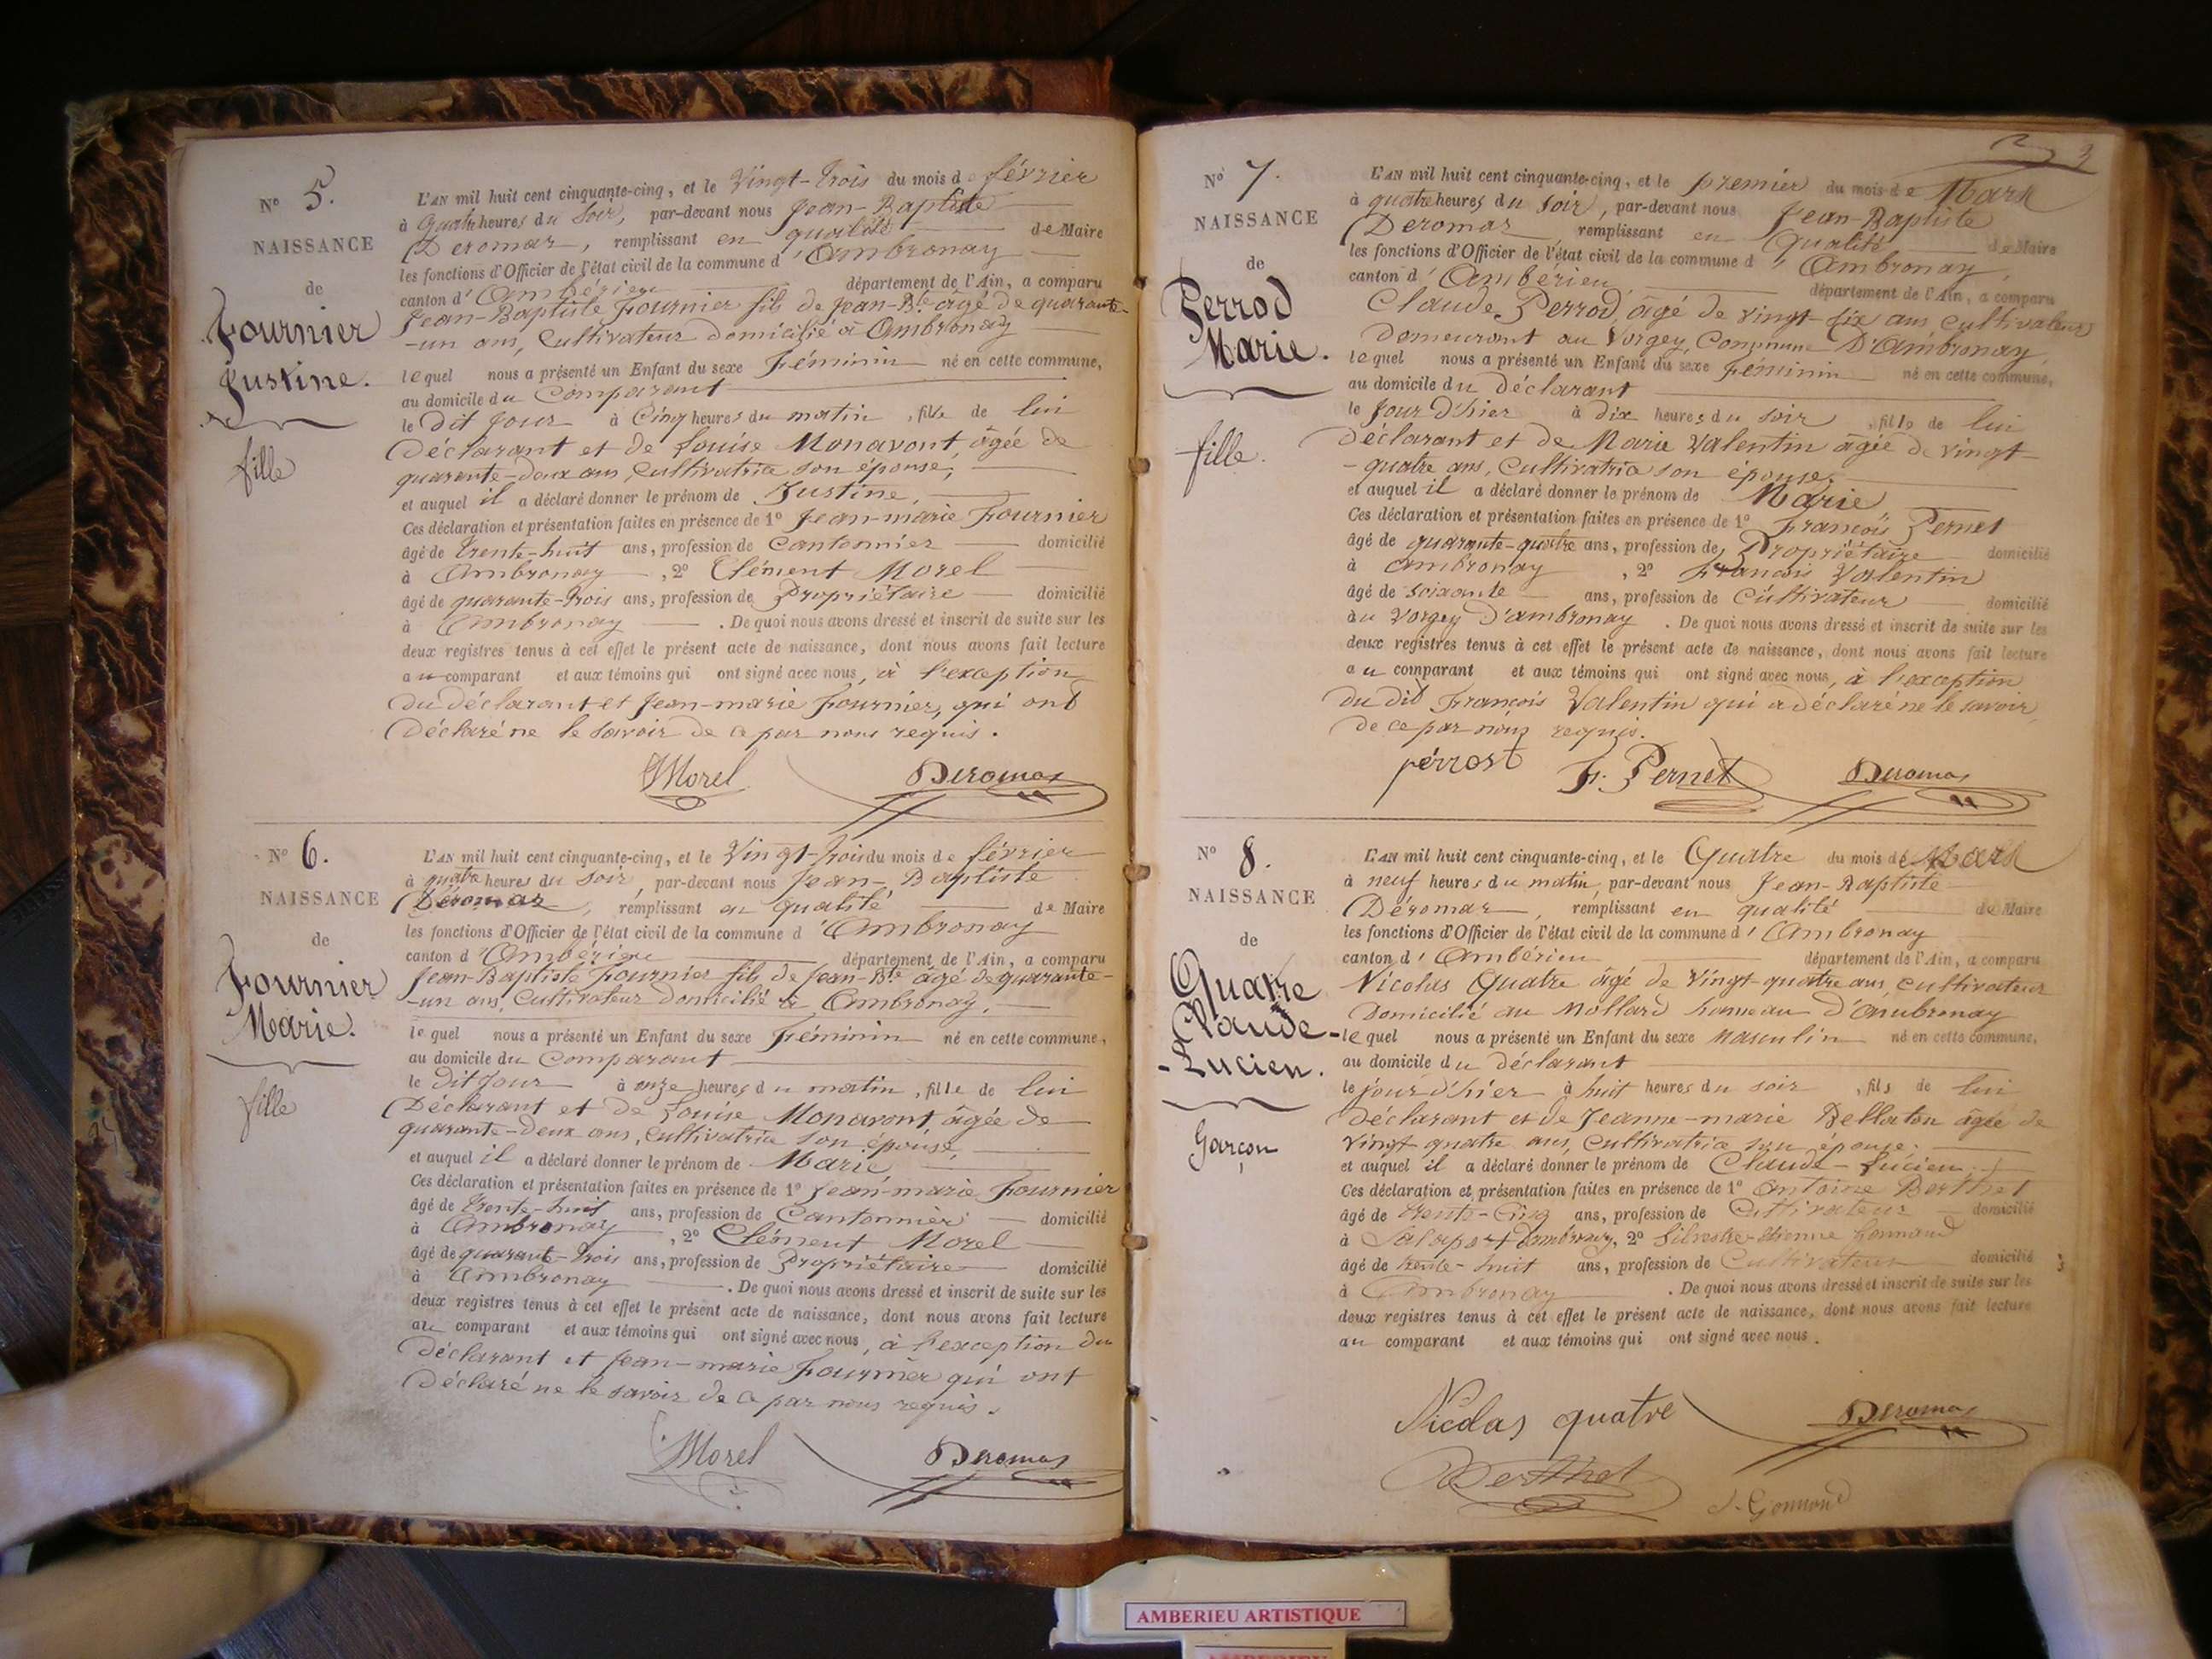 N° 5.
NAISSANCE
de
Fournier
Justine.
fille
L'AN mil huit cent cinquante-cinq, et le Vingt-trois du mois de février
à quatre heures du soir, par-devant nous Jean-Baptiste
Deromas, remplissant en qualité de Maire
les fonctions d'Officier de l'état civil de la commune d'Ambronay
canton d'Ambérieu département de l'Ain, a comparu
Jean-Baptiste Fournier fils de Jean-Bte âgé de quarante-
-un ans, Cultivateur domicilié à Ambronay
lequel nous a présenté un Enfant du sexe Féminin né en cette commune,
au domicile du Comparant
le dit jour à Cinq heures du matin, fille de lui
Déclarant et de Louise Monavont, âgée de
quarante-deux ans, Cultivatrice son épouse,
et auquel il a déclaré donner le prénom de Justine.
Ces déclaration et présentation faites en présence de 1° Jean-marie Fournier
âgé de trente-huit ans, profession de Cantonnier domicilié
à Ambronay, 2° Clément Morel
âgé de quarante-trois ans, profession de Propriétaire domicilié
à Ambronay. De quoi nous avons dressé et inscrit de suite sur les
deux registres tenus à cet effet le présent acte de naissance, dont nous avons fait lecture
au comparant et aux témoins qui ont signé avec nous, à l'exception
du déclarant et Jean-marie Fournier, qui ont
Déclaré ne le savoir de ce par nous requis.
Morel Deromas
N° 6.
NAISSANCE
de
Fournier
Marie.
fille
L'AN mil huit cent cinquante-cinq, et le Vingt-trois du mois de février
à quatre heures du soir, par-devant nous Jean-Baptiste
Déromas, remplissant en qualité de Maire
les fonctions d'Officier de l'état civil de la commune d'Ambronay
canton d'Ambérieu département de l'Ain, a comparu
Jean-Baptiste Fournier fils de Jean-Bte âgé de quarante-
-un ans, Cultivateur domicilié à Ambronay,
lequel nous a présenté un Enfant du sexe Féminin né en cette commune,
au domicile du Comparant
le dit jour à onze heures du matin, fille de lui
Déclarant et de Louise Monavont, âgée de
quarante-deux ans, Cultivatrice son épouse,
et auquel il a déclaré donner le prénom de Marie
Ces déclaration et présentation faites en présence de 1° Jean-marie Fournier
âgé de trente-huit ans, profession de Cantonnier domicilié
à Ambronay, 2° Clément Morel
âgé de quarante-trois ans, profession de Propriétaire domicilié
à Ambronay. De quoi nous avons dressé et inscrit de suite sur les
deux registres tenus à cet effet le présent acte de naissance, dont nous avons fait lecture
au comparant et aux témoins qui ont signé avec nous, à l'exception du
Déclarant et Jean-marie Fournier qui ont
Déclaré ne le savoir de ce par nous requis.
Morel Deromas
3
N° 7.
NAISSANCE
de
Perrod
Marie.
fille.
L'AN mil huit cent cinquante-cinq, et le premier du mois de Mars
à quatre heures du soir, par-devant nous Jean-Baptiste
Deromas remplissant en Qualité de Maire
les fonctions d'Officier de l'état civil de la commune d'Ambronay,
canton d'Ambérieu, département de l'Ain, a comparu
Claude Perrod, âgé de vingt-six ans, Cultivateur
Demeurant au Vorgey, Commune D'Ambronay,
lequel nous a présenté un Enfant du sexe Féminin né en cette commune,
au domicile du Déclarant
le Jour d'hier à dix heures du soir, fille de lui
Déclarant et de Marie Valentin âgée de vingt-
-quatre ans, Cultivatrice son épouse,
et auquel il a déclaré donner le prénom de Marie
Ces déclaration et présentation faites en présence de 1° François Pernet
âgé de quarante-quatre ans, profession de Propriétaire domicilié
à Ambronay, 2° François Valentin
âgé de soixante ans, profession de Cultivateur domicilié
au Vorgey D'ambronay. De quoi nous avons dressé et inscrit de suite sur les
deux registres tenus à cet effet le présent acte de naissance, dont nous avons fait lecture
au comparant et aux témoins qui ont signé avec nous, à l'exception
du dit François Valentin qui a déclaré ne le savoir
de ce par nous requis.
pérrost F. Pernet Deromas
N° 8.
NAISSANCE
de
Quatre
Claude-
-Lucien.
Garçon
L'AN mil huit cent cinquante-cinq, et le Quatre du mois de Mars
à neuf heures du matin, par-devant nous Jean-Baptiste
Déromas, remplissant en qualité de Maire
les fonctions d'Officier de l'état civil de la commune d'Ambronay
canton d'Ambérieu département de l'Ain, a comparu
Nicolas Quatre âgé de Vingt-quatre ans, cultivateur
Domicilié au Mollard hameau d'Ambronay
lequel nous a présenté un Enfant du sexe Masculin né en cette commune,
au domicile du déclarant
le jour d'hier à huit heures du soir, fils de lui
Déclarant et de Jeanne-marie Bellaton âgée de
vingt-quatre ans, Cultivatrice son épouse.
et auquel il a déclaré donner le prénom de Claude-Lucien
Ces déclaration et présentation faites en présence de 1° Antoine Berthet
âgé de trente-cinq ans, profession de Cultivateur domicilié
à Salaport d'ambronay, 2° Silvestre-Etienne Gonnand
âgé de trente-huit ans, profession de Cultivateur domicilié
à Ambronay. De quoi nous avons dressé et inscrit de suite sur les
deux registres tenus à cet effet le présent acte de naissance, dont nous avons fait lecture
au comparant et aux témoins qui ont signé avec nous.
Nicolas quatre Deromas
Berthet
AMBERIEU ARTISTIQUE
AMBERIEU